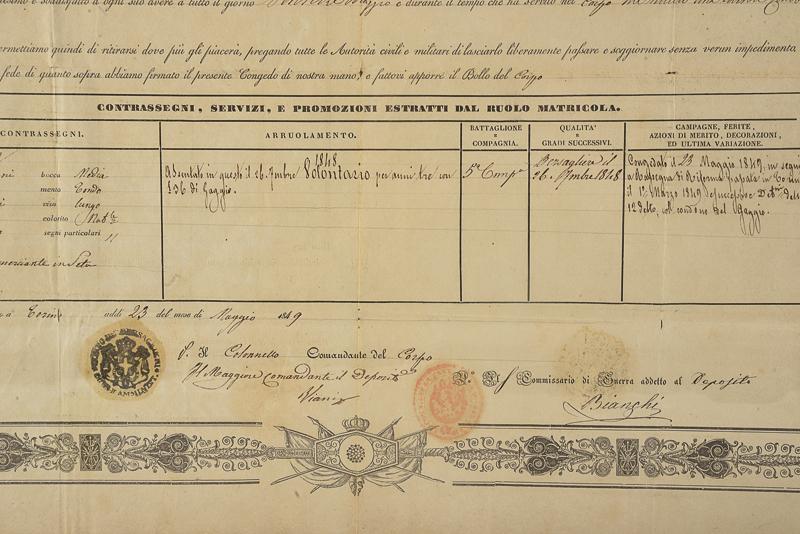 e soddisfatto d'ogni suo avere a tutto il giorno Maggio e durante il tempo che ha servito nel Corpo
ermettiamo quindi di ritirarsi dove più gli piacerà, pregando tutte le Autorità civili e militari di lasciarlo liberamente passare e soggiornare senza verun impedimento.
fede di quanto sopra abbiamo firmato il presente Congedo di nostra mano, e fattovi apporre il Bollo del Corpo
CONTRASSEGNI, SERVIZI, E PROMOZIONI ESTRATTI DAL RUOLO MATRICOLA.
CONTRASSEGNI.
bocca Media
mento Tondo
viso lungo
colorito Nat.le
segni particolari //
in Seta
ARRUOLAMENTO.
Assentato in questo il 26. 7mbre 1848 Volontario per anni tre con
£36 di Gaggio.
BATTAGLIONE
E
COMPAGNIA.
5ª Compª
QUALITA'
E
GRADI SUCCESSIVI.
Bersagliere il
26. 7mbre 1848
CAMPAGNE, FERITE,
AZIONI DI MERITO, DECORAZIONI,
ED ULTIMA VARIAZIONE.
Congedato il 23 Maggio 1849, in seguito
a Rassegna di Riforma passata in Torino
il 1° Marzo 1849
12 detto, col condono del Gaggio.
Torino addi 23 del mese di Maggio 1849
P. Il Colonnello Comandante del Corpo
Il Maggiore Comandante il Deposito
P. Il Commissario di Guerra addetto al Deposito
Bianchi